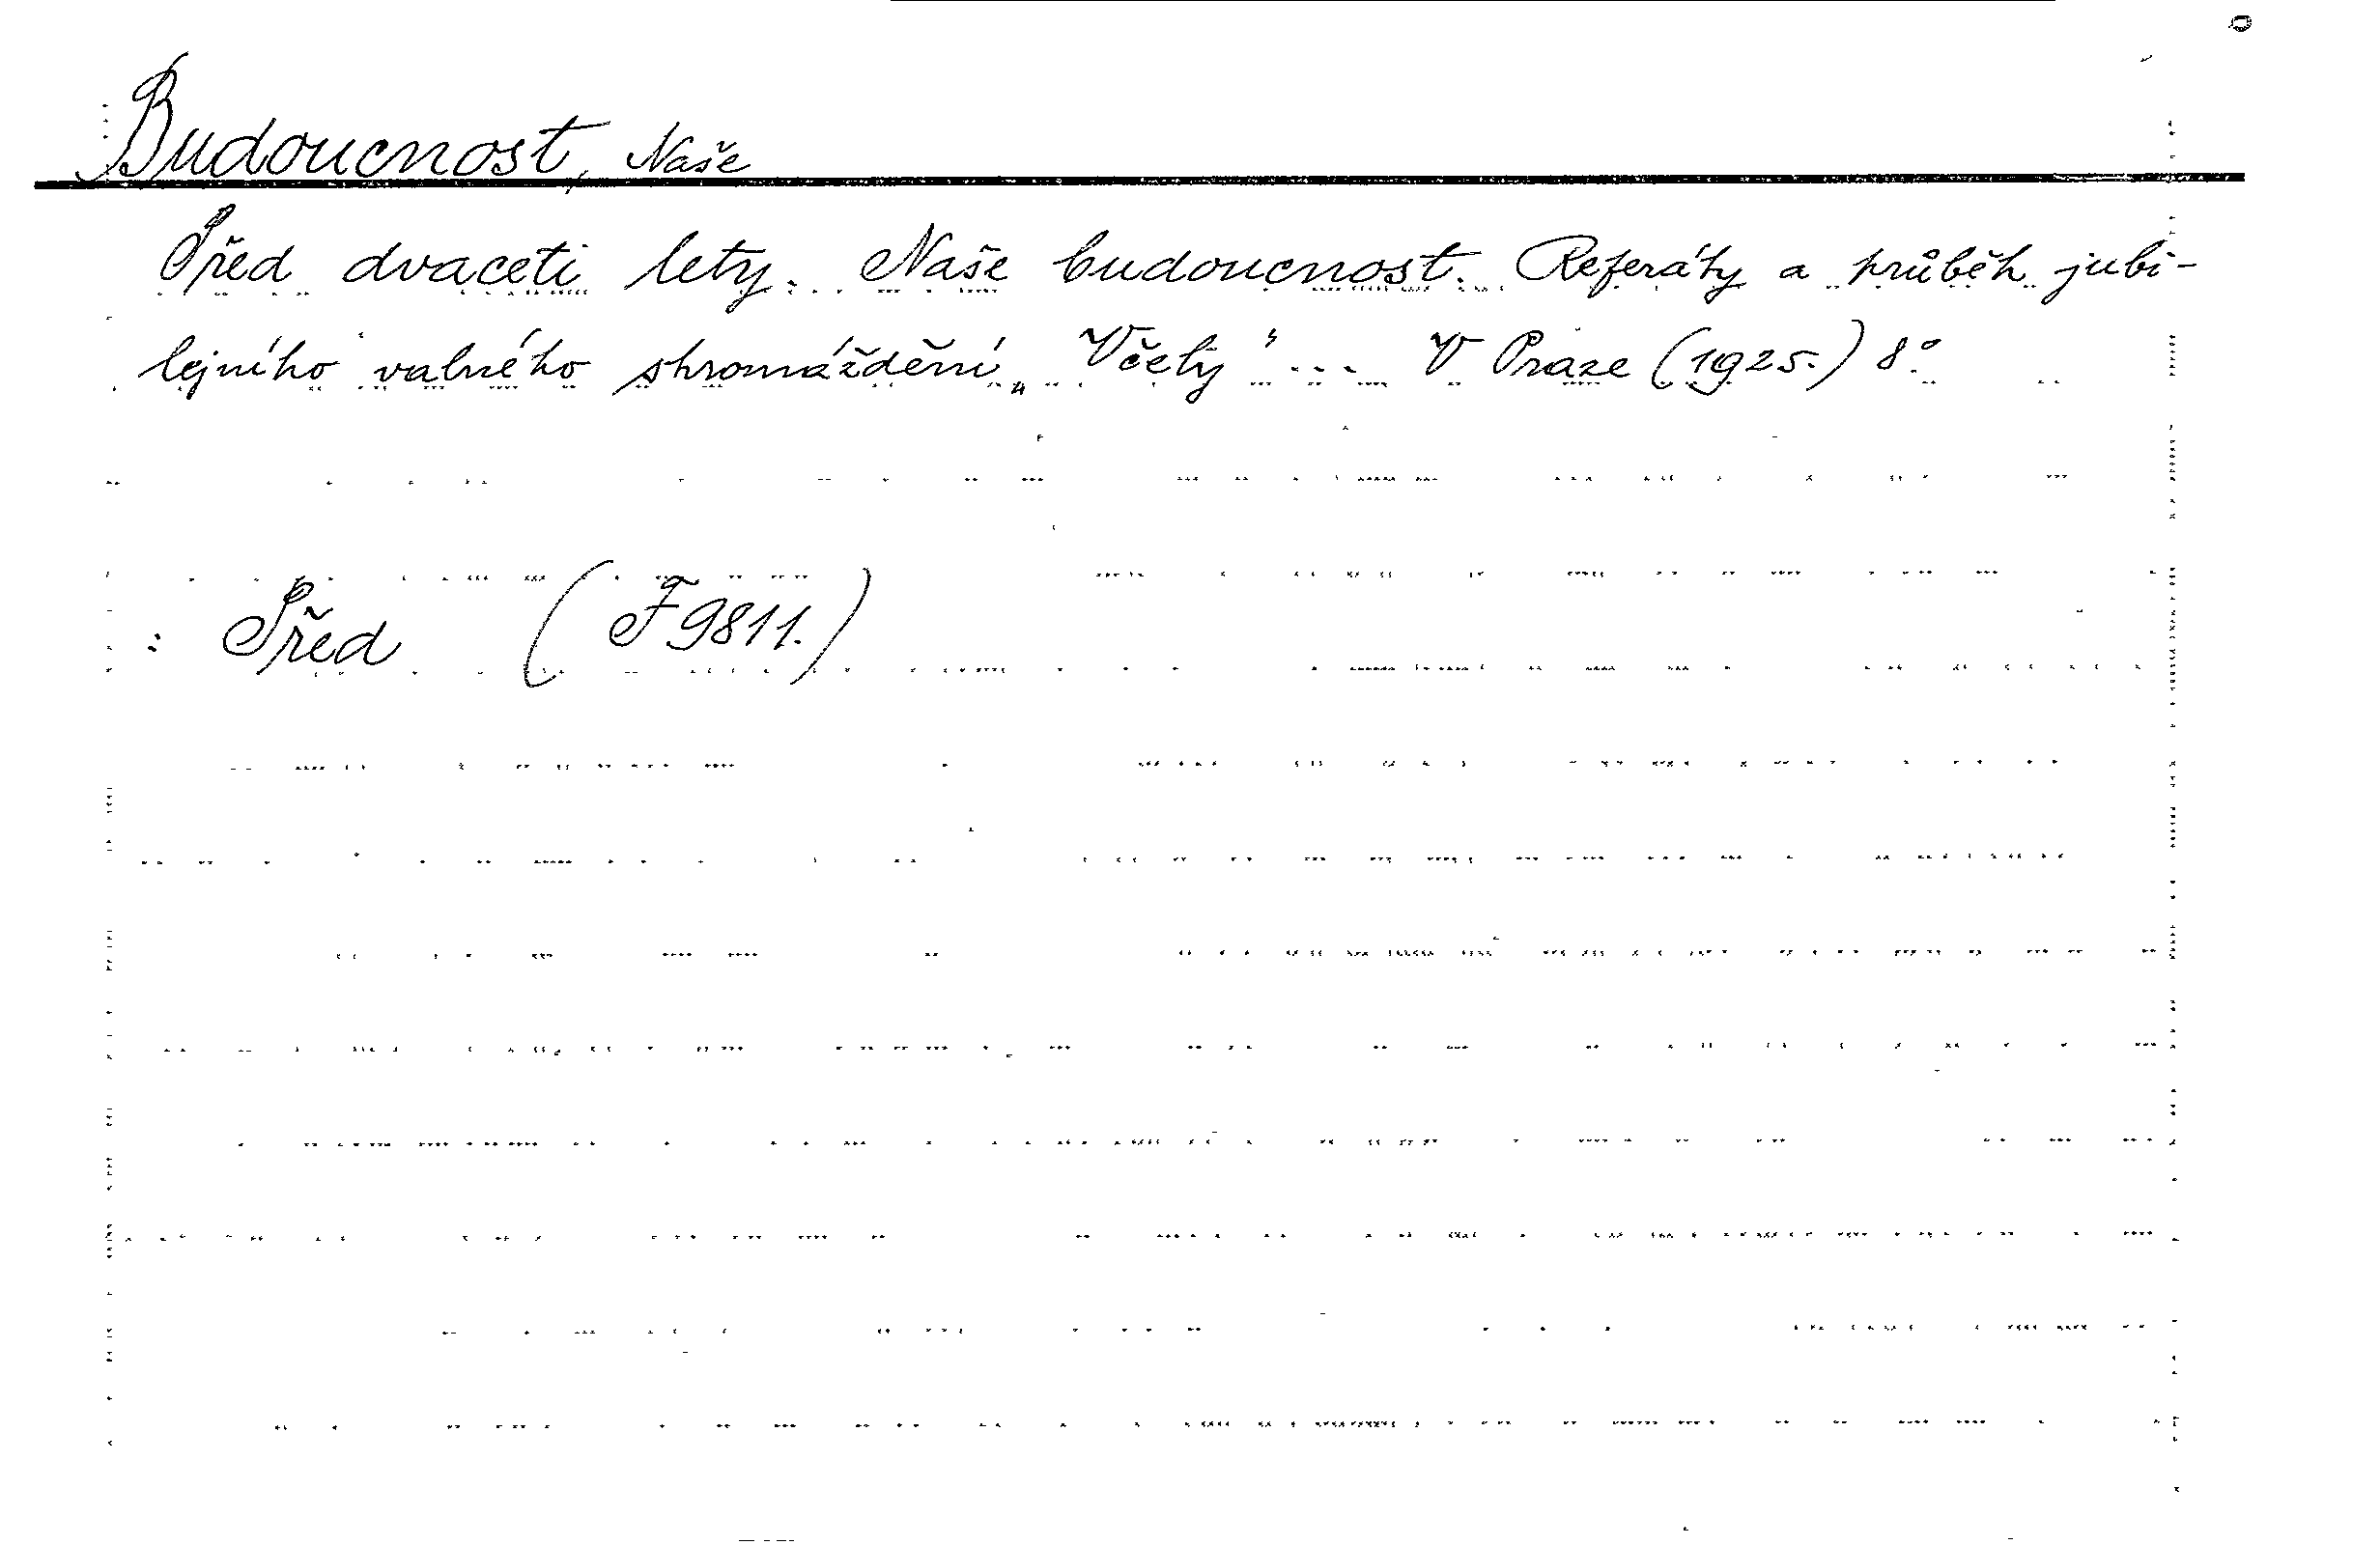 Budoucnost, Naše
Před dvaceti lety. Naše budoucnost. Referáty a průběh jubi-
lejního valného shromáždění „Včely" ... V Praze (1925.) 8°.
: Před (F 9811.)